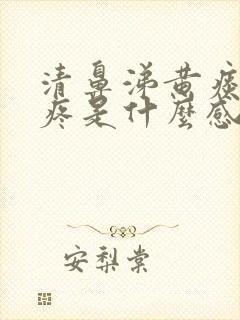 清鼻涕黄痰
疼是什麼感
安梨棠